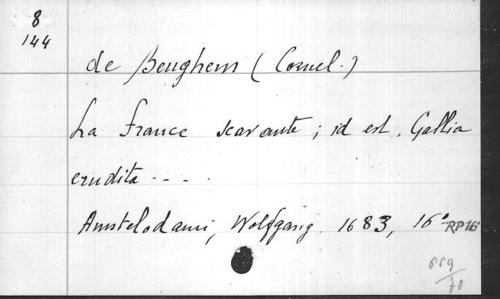 8
144
de Beughem (Cornel.)
La France scavante; id est. Gallia
erudita ....
Amstelodami, Wolfgang 1683, 16° RP16
70